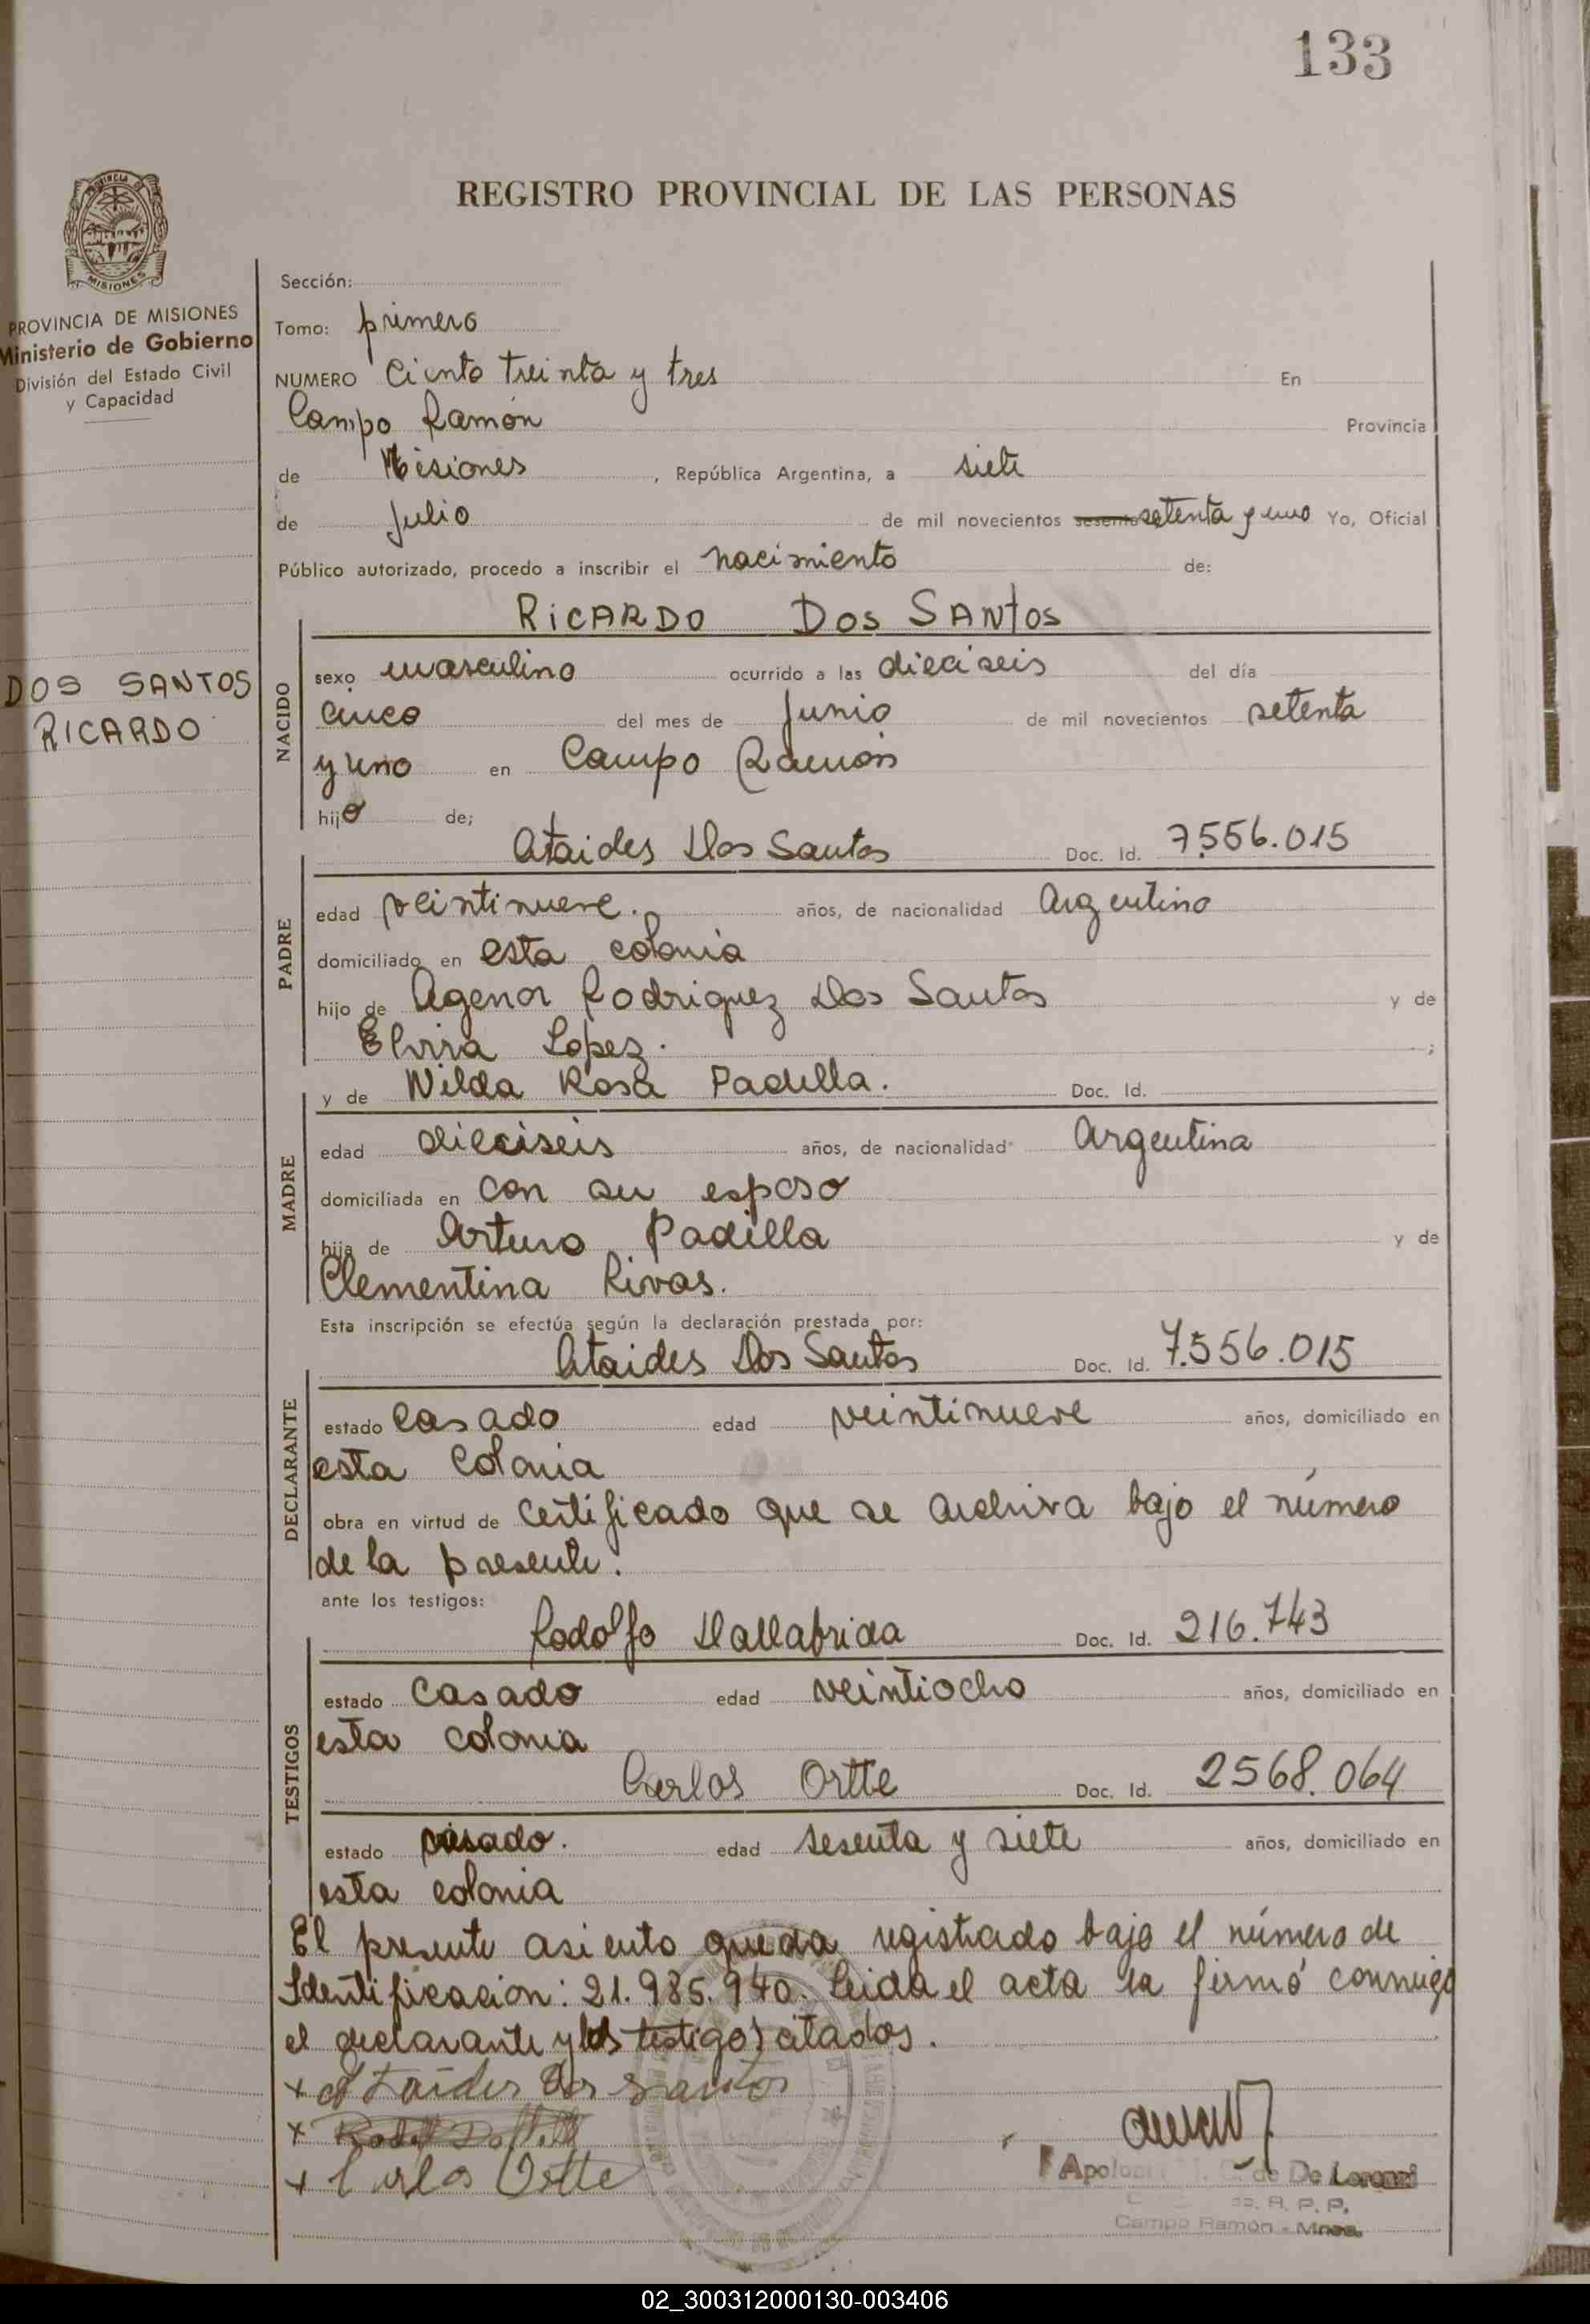 133
REGISTRO PROVINCIAL DE LAS PERSONAS
PROVINCIA DE MISIONES
MISIONES
PROVINCIA DE MISIONES
Ministerio de Gobierno
División del Estado Civil
y Capacidad
Sección:
Tomo: primero
NUMERO Ciento treinta y tres En
Campo Ramón Provincia
de Misiones , República Argentina, a siete
de Julio de mil novecientos sesenta setenta y uno Yo, Oficial
Público autorizado, procedo a inscribir el nacimiento de:
RICARDO DOS SANTOS
DOS SANTOS
RICARDO
NACIDO
sexo masculino ocurrido a las dieciseis del día
cinco del mes de Junio de mil novecientos setenta
y uno en Campo Ramón
hijo de;
Ataides Dos Santos Doc. Id. 7.556.015
PADRE
edad veintinueve. años, de nacionalidad Argentino
domiciliado en esta colonia
hijo de Agenor Rodriguez Dos Santos y de
Elvira Lopez. ;
y de Nilda Rosa Padilla. Doc. Id.
MADRE
edad dieciseis años, de nacionalidad Argentina
domiciliada en con su esposo
hija de Arturo Padilla y de
Clementina Rivas.
Esta inscripción se efectúa según la declaración prestada por:
Ataides Dos Santos Doc. Id. 7.556.015
DECLARANTE
estado Casado edad veintinueve años, domiciliado en
esta Colonia
obra en virtud de Certificado que se archiva bajo el número
de la presente.
ante los testigos:
Rodolfo Dallabrida Doc. Id. 216.743
TESTIGOS
estado Casado edad veintiocho años, domiciliado en
esta colonia
Carlos Ortte Doc. Id. 2568.064
estado casado. edad sesenta y siete años, domiciliado en
esta colonia
El presente asiento queda registrado bajo el número de
Identificacion: 21.985.940. Leida el acta la firmó conmigo
el declarante y los testigos citados.
x Ataides Dos Santos
x
x Carlos Ortte
de De Lorenzi
R. P. P.
Campo Ramón - Mnes.
02_300312000130-003406